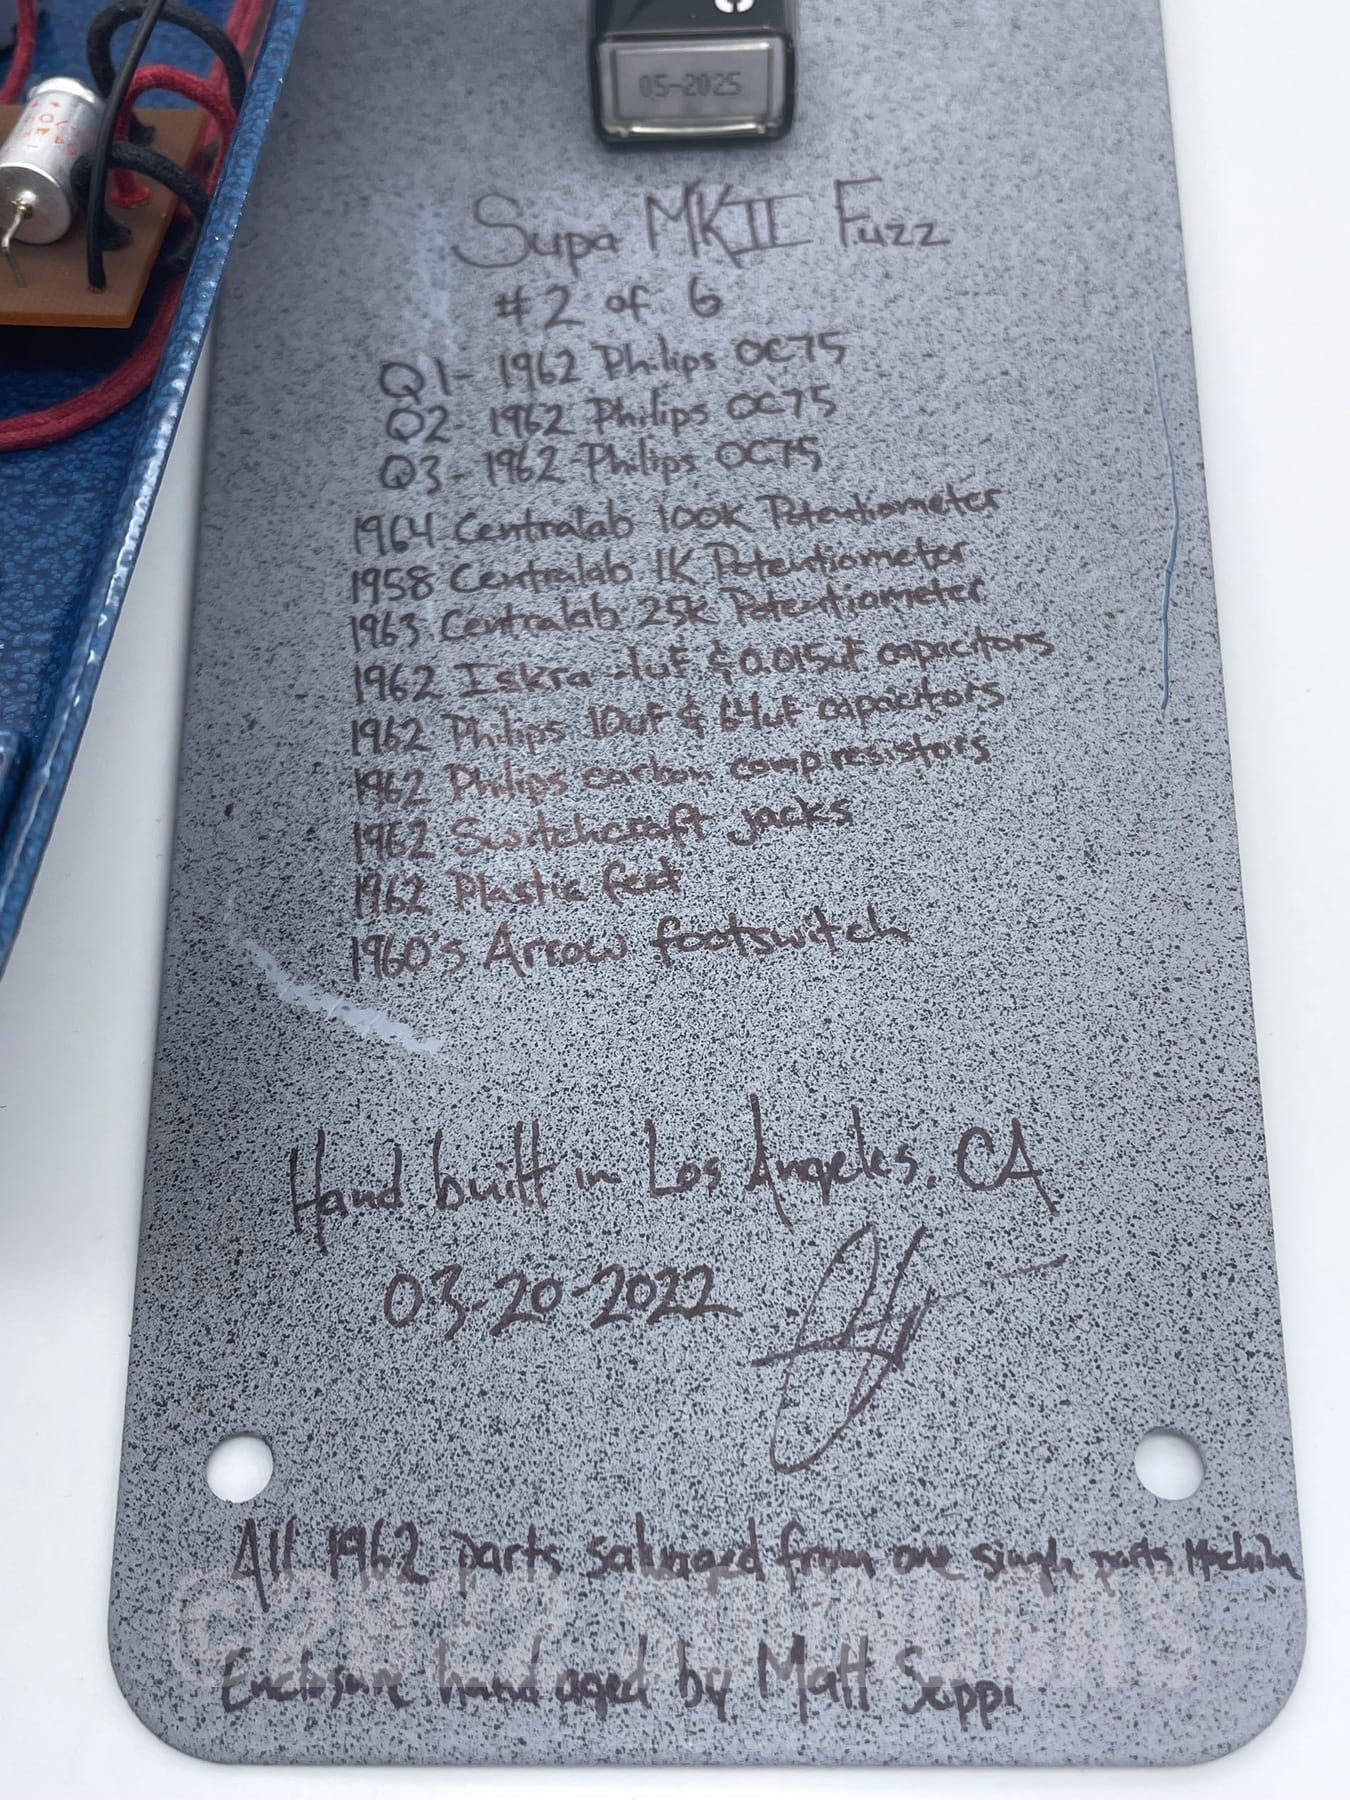 05-2025
Supa MKII Fuzz
#2 of 6
Q1- 1962 Philips OC75
Q2- 1962 Philips OC75
Q3- 1962 Philips OC75
1964 Centralab 100K Potentiometer
1958 Centralab 1K Potentiometer
1963 Centralab 25k Potentiometer
1962 Iskra .1uF & 0.015uF capacitors
1962 Philips 10uF & 64uF capacitors
1962 Philips carbon comp resistors
1962 Switchcraft jacks
1962 Plastic feet
1960's Arrow footswitch
Hand built in Los Angeles, CA
03-20-2022
All 1962 parts salvaged from one single parts
Enclosure hand aged by Matt Seppi